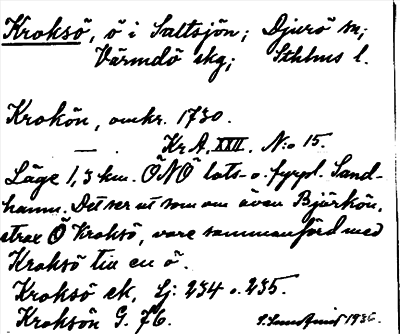 Kroksö, ö i Saltsjön; Djurö sn;
Värmdö skg; Sthlms l.
Krokön, omkr. 1730.
— . Kr A. XXII. N:o 15.
Läge 1,3 km. ÖNÖ lots- o. fyrpl. Sand-
hamn. Det ser ut som om även Björkön,
strax Ö Kroksö, vore sammanförd med
Kroksö till en ö.
Kroksö ek. Lj: 234 o. 235.
Kroksön G. 76. 1936.